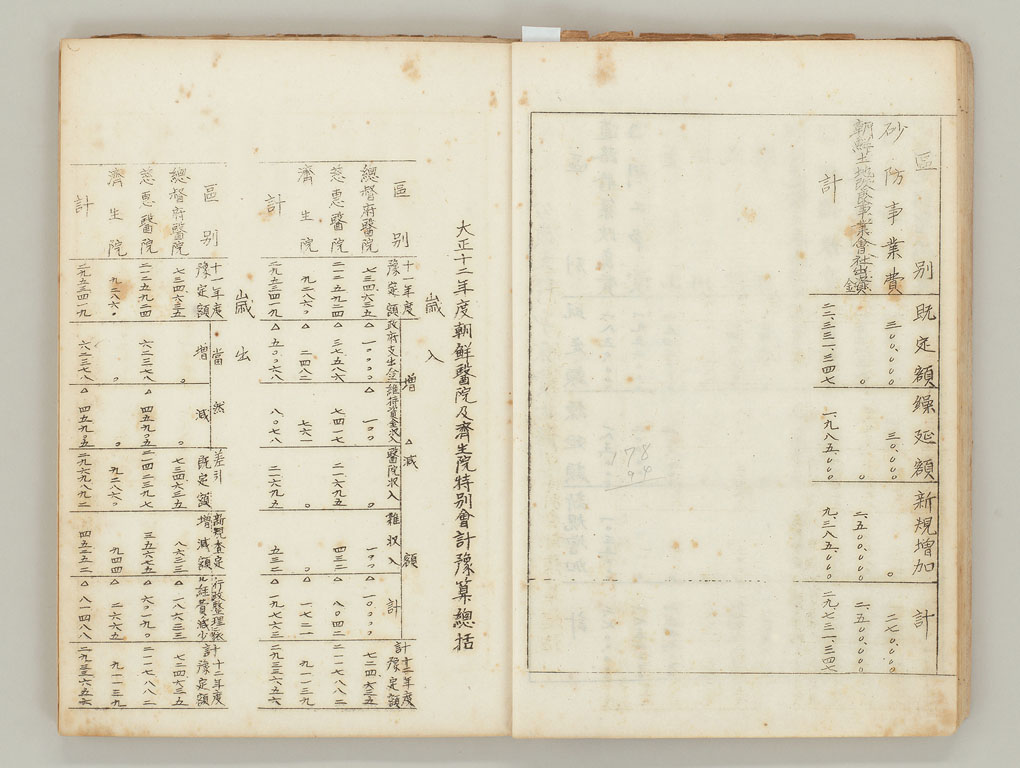 區別 既定額 繰延額 新規増加 計
砂防事業費 三〇〇,〇〇〇 三〇,〇〇〇 〇 二七〇,〇〇〇
朝鮮土地改良事業會社出資金 〇 〇 二,五〇〇,〇〇〇 二,五〇〇,〇〇〇
計 二二,三三一,三四七 一,九八五,〇〇〇 九,三八五,〇〇〇 二九,七三一,三四七
大正十二年度朝鮮醫院及濟生院特別會計豫算總括
歳入
區別 十一年度豫定額 増△減額 政府支出金 維持資金収入 醫院収入 雜収入 計 計十二年度豫定額
總督府醫院 七三四六三五 △一〇〇〇〇 △一〇〇 〇 一〇〇 △一〇〇〇〇 七二四六三五
慈惠醫院 二一二五九二四 △三七五八六 七四一七 二一六九五 四三二 △八〇四二 二一一七八八二
濟生院 九二八六〇 △二四八二 七六一 〇 〇 △一七二一 九一一三九
計 二九五三四一九 △五〇〇六八 八〇七八 二一六九五 五三二 △一九七六三 二九三三六五六
歳出
區別 十一年度豫定額 當然増 減 差引既定額 新規査定増減額 行政整理ニ依ル經費減少 計十二年度豫定額
總督府醫院 七三四六三五 〇 〇 七三四六三五 八六三三 △一八六三三 七二四六三五
慈惠醫院 二一二五九二四 六二三七八 △四五九〇五 二一四二三九七 三五六七五 △六〇一九〇 二一一七八八二
濟生院 九二八六〇 〇 〇 九二八六〇 九四四 △二六六五 九一一三九
計 二九五三四一九 六二三七八 △四五九〇五 二九六九八九二 四五二五二 △八一四八八 二九三三六五六